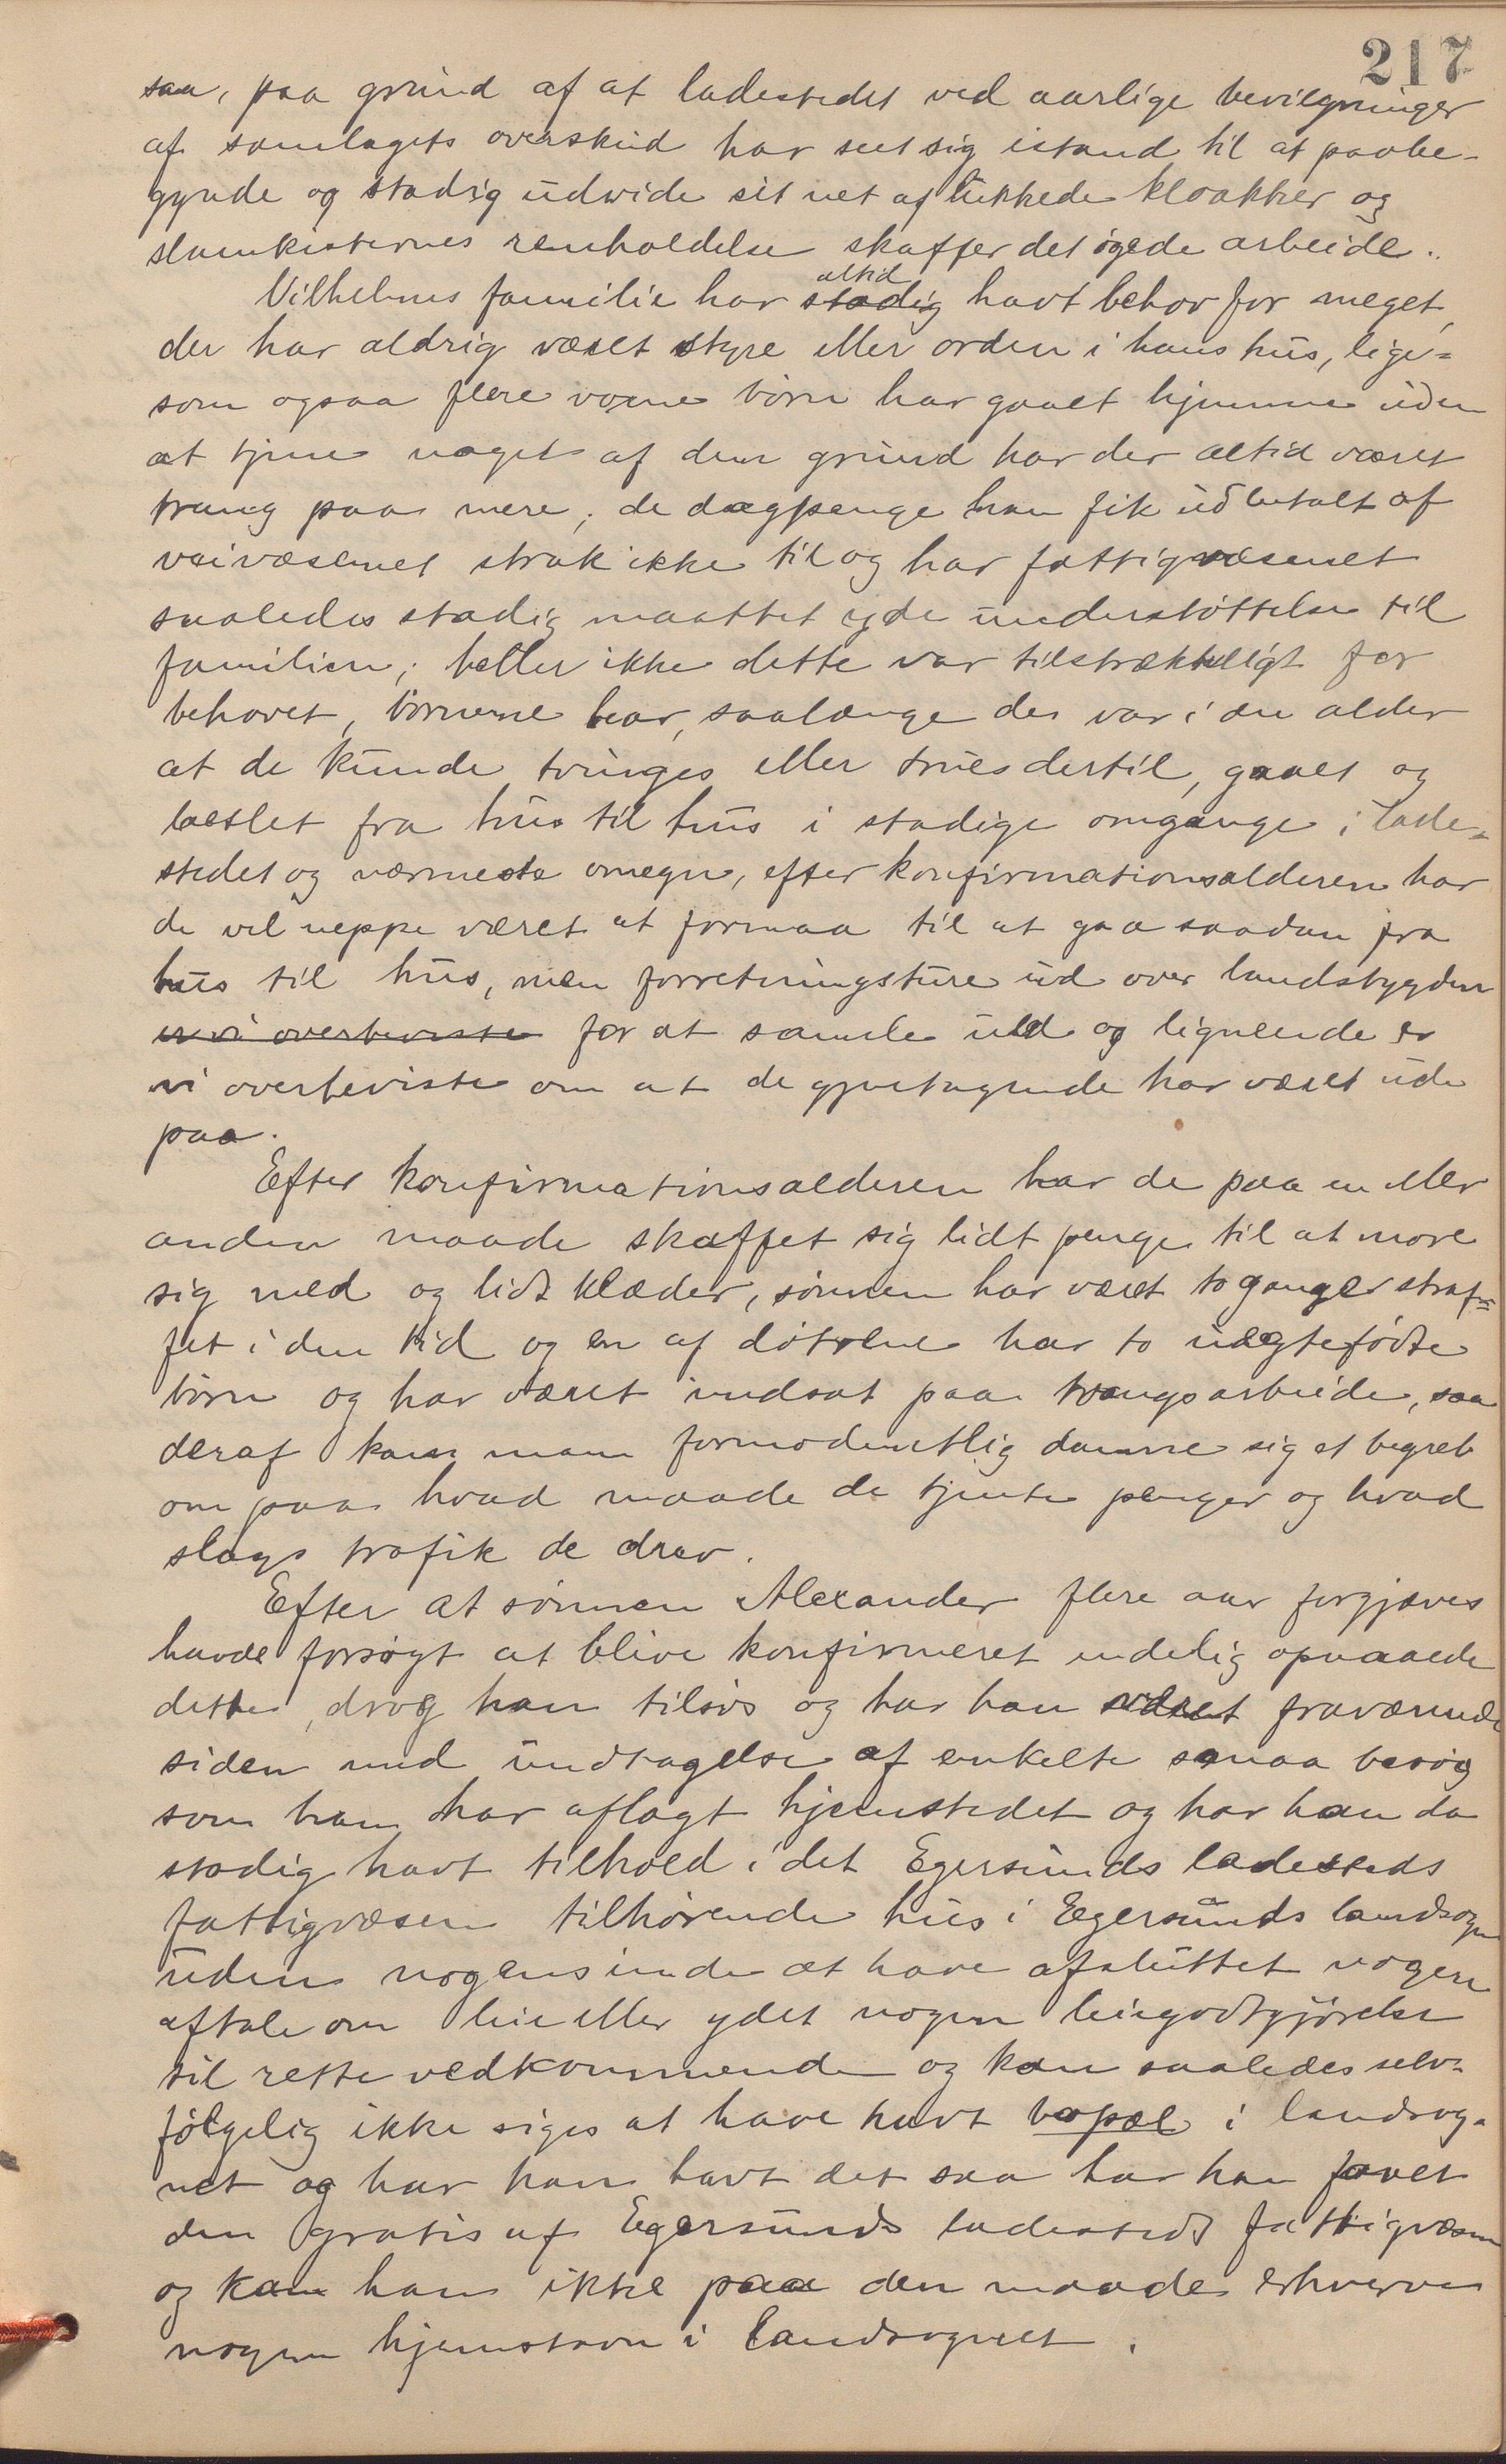 217
saa, paa grund af at ladestedet ved aarlige bevilgninger
af samlagets overskud har seet sig istand til at paabe-
gynde og stadig udvide sit net af lukkede kloakker og
slamkisternes renholdelse skaffer det øgede arbeide.
Vilhelms familie har stadig altid havt behov for meget,
der har aldrig været styre eller orden i hans hus, lige=
som ogsaa flere voxne børn har gaaet hjemme uden
at tjene noget af den grund har der altid været
trang paa mere, de dagpenge han fik udbetalt af
veivæsenet strak ikke til og har fattigvæsenet
saaledes stadig maattet yde understøttelse til
familien; heller ikke dette var tilstrækkeligt for
behovet, børnene har, saalænge de var i den alder
at de kunde tvinges eller trues dertil, gaaet og
batlet fra hus til hus i stadige omgange i lade=
stedet og nærmeste omegn, efter konfirmationsalderen har
de vel neppe været at formaa til at gaa saadan fra
hus til hus, men forretningsture ud over landsbygden
er vi overbeviste for at samle uld og lignende er
vi overbeviste om at de gjentagende har været ude
paa.
Efter konfirmationsalderen har de paa en eller
anden maade skaffet sig lidt penge til at more
sig med og lidt klæder, sønnen har været to ganger straf=
fet i den tid og en af døtrene har to uægtefødte
børn og har været indsat paa tvangsarbeide, saa
deraf kan man formodentlig danne sig et begreb
om paa hvad maade de tjente penger og hvad
slags trafik de drev.
Efter at sønnen Alexander flere aar forgjæves
havde forsøgt at blive konfirmeret endelig opnaaede
dette, drog han tilsøs og har han været fraværende
siden med undtagelse af enkelte smaa besøg
som han har aflagt hjemstedet og har han da
stadig havt tilhold i det Egersunds ladesteds
fattigvæsen tilhørende hus i Egersunds landsogn
uden nogensinde at have afsluttet nogen
aftale om leie eller ydet nogen leiegodtgjørelse
til rette vedkommende og kan saaledes selv-
følgelig ikke siges at have havt bopæl i landsog-
net og har han havt det saa har han faaet
den gratis af Egersunds ladesteds fattigvæsen
og kan han ikke paa den maade erhverve
nogen hjemstavn i landsognet.